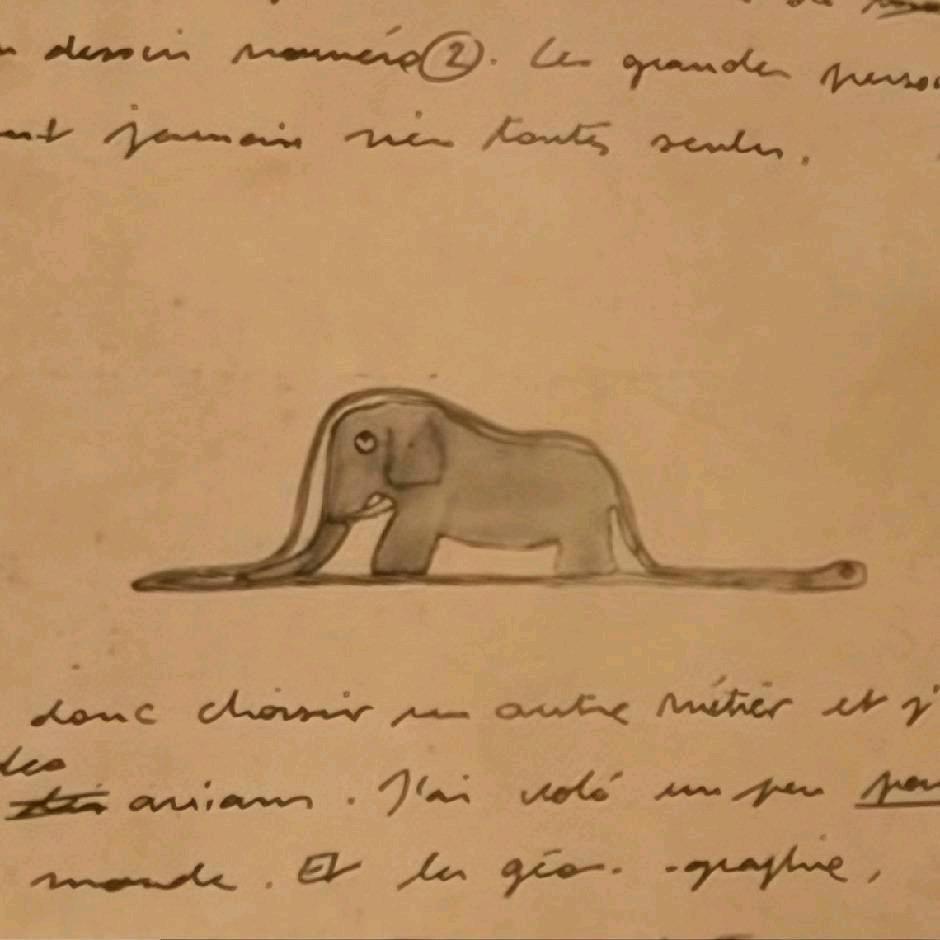 dessin numéro 2. Les grandes
jamais rien toutes seules.
donc choisir un autre métier et j'
des
avions. J'ai volé un peu
monde. Et la géo- -graphie,